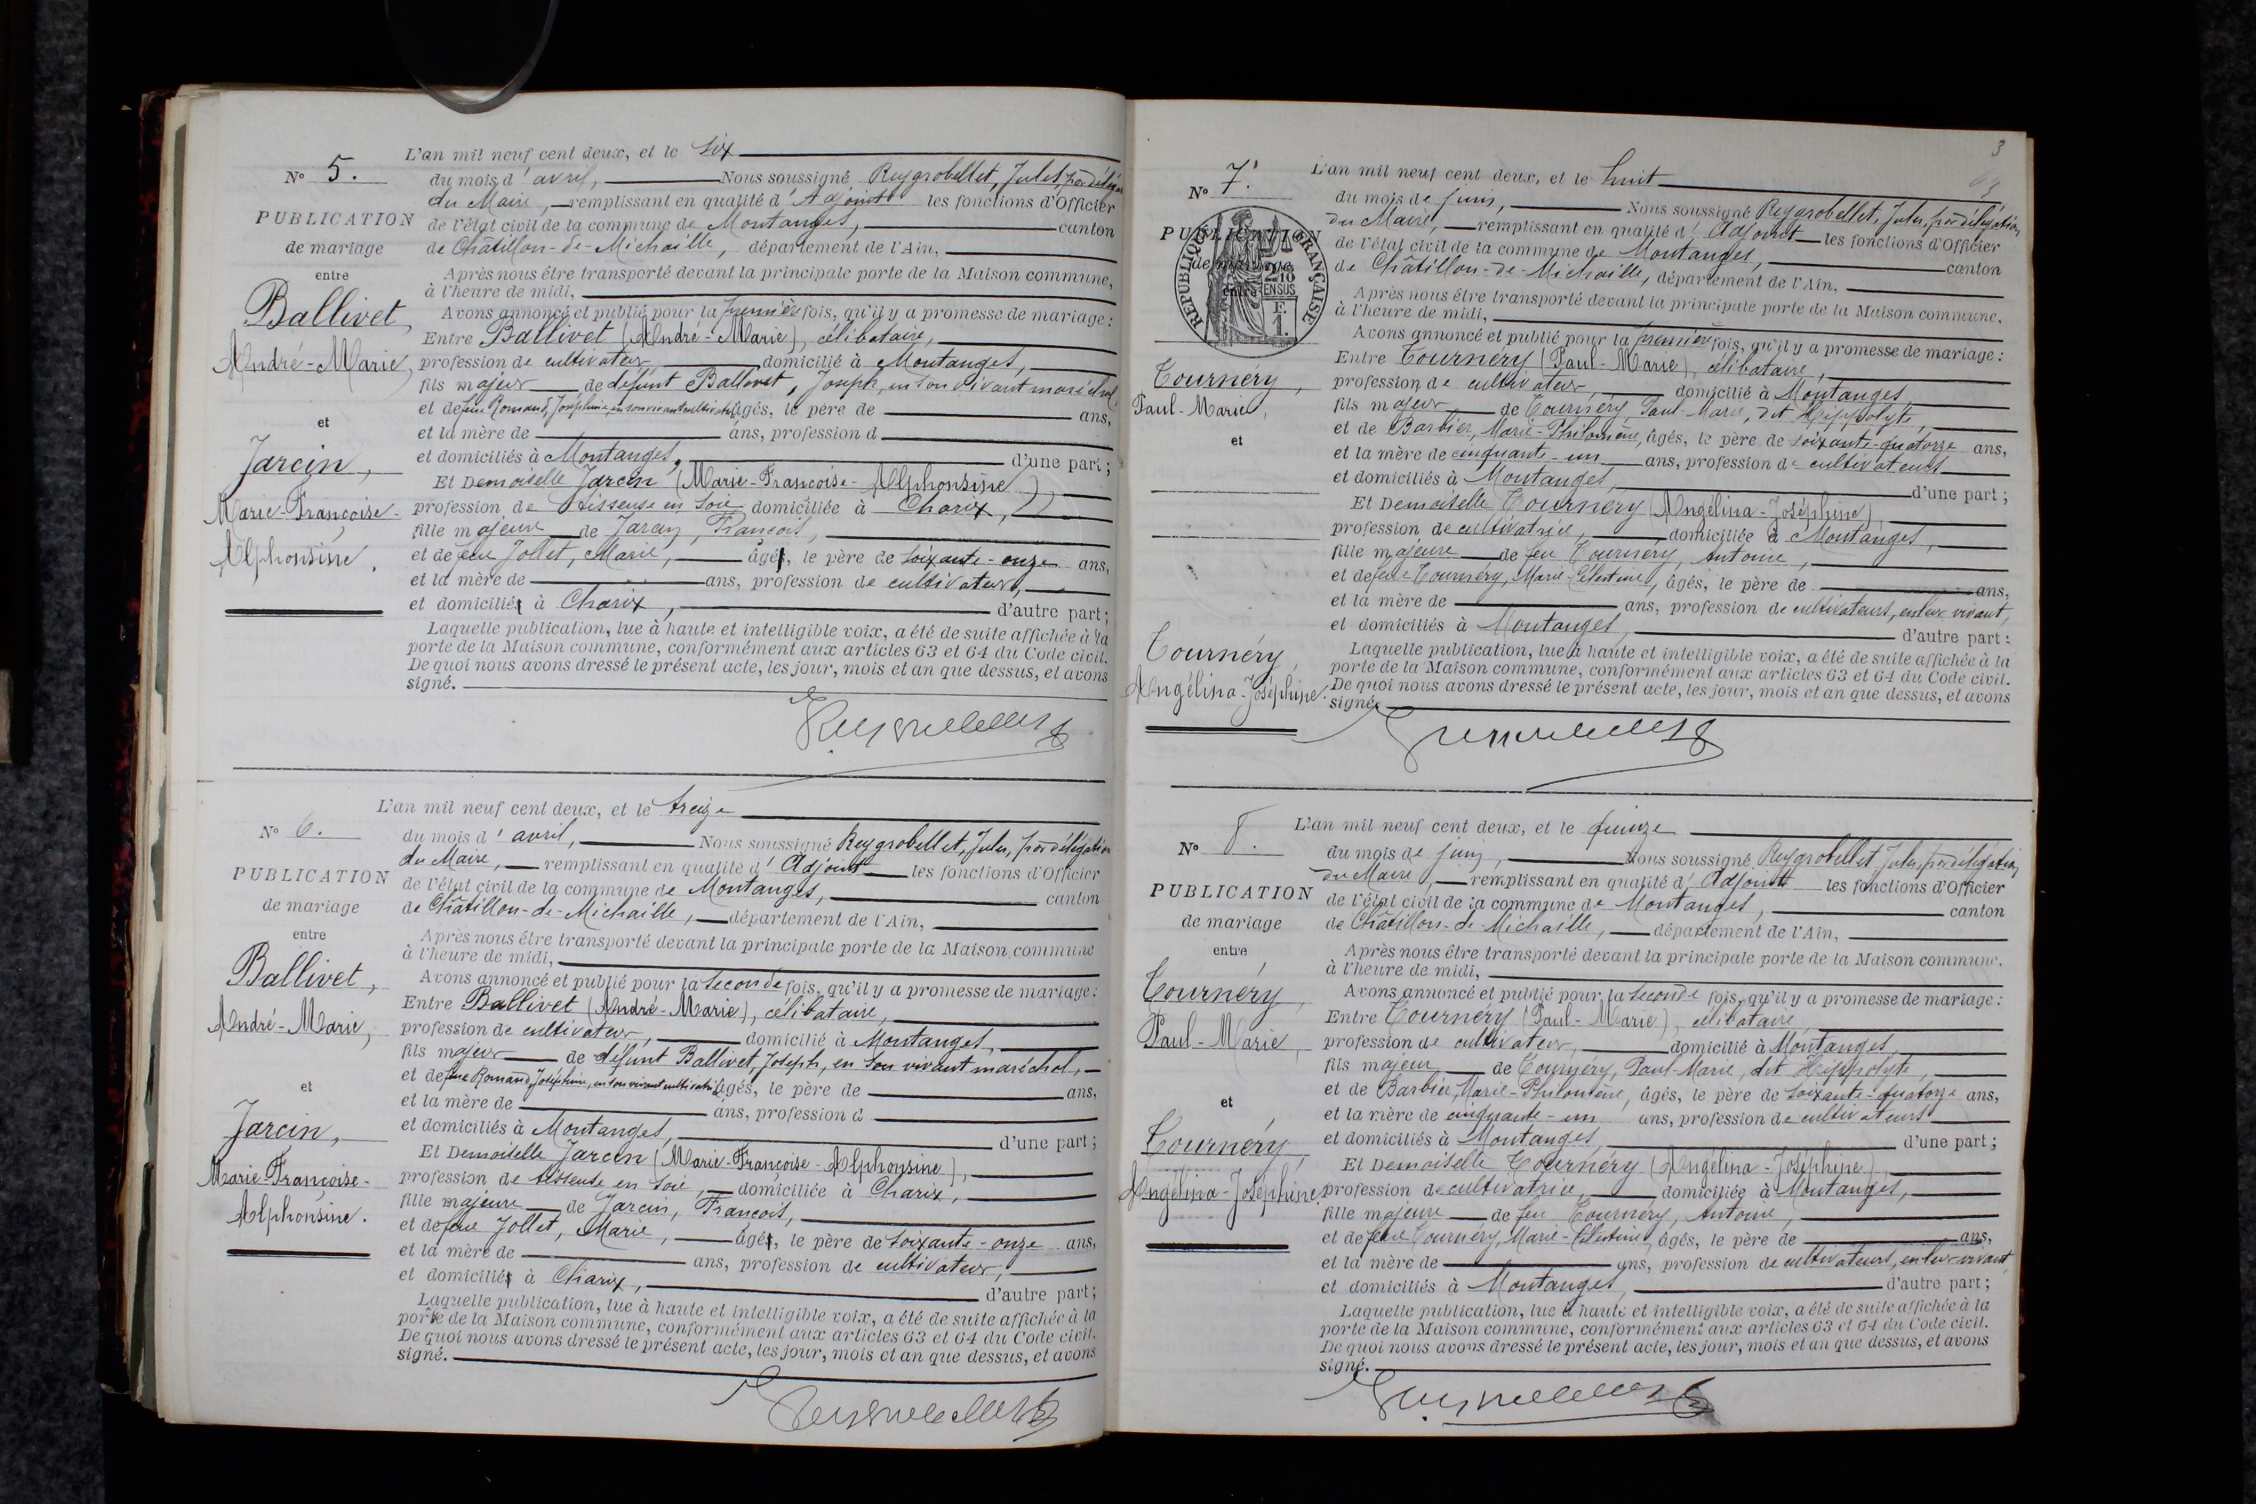 L'an mil neuf cent deux, et le six
N° 5.
du mois d'avril, Nous soussigné Reygrobellet, Jules, par délégation
du Maire, remplissant en qualité d'Adjoint les fonctions d'Officier
PUBLICATION
de l'état civil de la commune de Montanges, canton
de mariage
de Châtillon-de-Michaille, département de l'Ain.
entre
Après nous être transporté devant la principale porte de la Maison commune,
à l'heure de midi,
Ballivet,
Avons annoncé et publié pour la première fois, qu'il y a promesse de mariage:
Entre Ballivet (André-Marie), célibataire,
André-Marie,
profession de cultivateur, domicilié à Montanges,
fils majeur de défunt Ballivet, Joseph, en son vivant maréchal,
et de feue Romand, Joséphine, en son vivant cultivatrice âgés, le père de ans,
et
et la mère de ans, profession d
Jarcin,
et domiciliés à Montanges, d'une part;
Et Demoiselle Jarcin (Marie-Françoise-Alphonsine),
Marie-Françoise-
profession de tisseuse en soie domiciliée à Charix,
fille majeure de Jarcin, François,
Alphonsine.
et de feue Jollet, Marie, âgés, le père de soixante-onze ans,
et la mère de ans, profession de cultivateur,
et domiciliés à Charix, d'autre part;
Laquelle publication, lue à haute et intelligible voix, a été de suite affichée à la
porte de la Maison commune, conformément aux articles 63 et 64 du Code civil.
De quoi nous avons dressé le présent acte, les jour, mois et an que dessus, et avons
signé.
Reygrobellet
L'an mil neuf cent deux, et le treize
N° 6.
du mois d'avril, Nous soussigné Reygrobellet, Jules, par délégation
du Maire, remplissant en qualité d'Adjoint les fonctions d'Officier
PUBLICATION
de l'état civil de la commune de Montanges, canton
de mariage
de Châtillon-de-Michaille, département de l'Ain,
entre
Après nous être transporté devant la principale porte de la Maison commune
à l'heure de midi,
Ballivet,
Avons annoncé et publié pour la seconde fois, qu'il y a promesse de mariage:
Entre Ballivet (André-Marie), célibataire,
André-Marie,
profession de cultivateur, domicilié à Montanges,
fils majeur de défunt Ballivet, Joseph, en son vivant maréchal,
et de feue Romand, Joséphine, en son vivant cultivatrice âgés, le père de ans,
et
et la mère de ans, profession d
et domiciliés à Montanges, d'une part;
Jarcin,
Et Demoiselle Jarcin (Marie-Françoise-Alphonsine),
Marie-Françoise-
profession de tisseuse en soie, domiciliée à Charix,
fille majeure de Jarcin, François,
Alphonsine.
et de feue Jollet, Marie, âgés, le père de soixante-onze ans,
et la mère de ans, profession de cultivateur,
et domiciliés à Charix, d'autre part;
Laquelle publication, lue à haute et intelligible voix, a été de suite affichée à la
porte de la Maison commune, conformément aux articles 63 et 64 du Code civil.
De quoi nous avons dressé le présent acte, les jour, mois et an que dessus, et avons
signé.
Reygrobellet
3
L'an mil neuf cent deux, et le huit
N° 7.
du mois de juin, Nous soussigné Reygrobellet, Jules, par délégation
du Maire, remplissant en qualité d'Adjoint les fonctions d'Officier
PUBLICATION
de l'état civil de la commune de Montanges, canton
de mariage
de Châtillon-de-Michaille, département de l'Ain.
entre
RÉPUBLIQUE FRANÇAISE
2/10
EN SUS
F.
1.
Après nous être transporté devant la principale porte de la Maison commune.
à l'heure de midi,
Avons annoncé et publié pour la première fois, qu'il y a promesse de mariage:
Entre Tournéry (Paul-Marie), célibataire,
Tournéry,
profession de cultivateur, domicilié à Montanges,
Paul-Marie,
fils majeur de Tournéry, Paul-Marie, dit Hippolyte,
et de Barbier, Marie-Philomène, âgés, le père de soixante-quatorze ans,
et
et la mère de cinquante-un ans, profession de cultivateurs
et domiciliés à Montanges, d'une part;
Et Demoiselle Tournéry (Angélina-Joséphine),
profession de cultivatrice, domiciliée à Montanges,
fille majeure de feu Tournéry, Antoine,
et de feue Tournéry, Marie-Célestine, âgés, le père de ans,
et la mère de ans, profession de cultivateurs, en leur vivant,
et domiciliés à Montanges, d'autre part:
Tournéry,
Laquelle publication, lue à haute et intelligible voix, a été de suite affichée à la
porte de la Maison commune, conformément aux articles 63 et 64 du Code civil.
Angélina-Joséphine.
De quoi nous avons dressé le présent acte, les jour, mois et an que dessus, et avons
signé.
Reygrobellet
L'an mil neuf cent deux, et le quinze
N° 8.
du mois de juin, Nous soussigné Reygrobellet Jules, par délégation
du Maire, remplissant en qualité d'Adjoint les fonctions d'Officier
PUBLICATION
de l'état civil de la commune de Montanges, canton
de mariage
de Châtillon-de-Michaille, département de l'Ain,
entre
Après nous être transporté devant la principale porte de la Maison commune.
à l'heure de midi,
Tournéry,
Avons annoncé et publié pour la seconde fois, qu'il y a promesse de mariage:
Entre Tournéry (Paul-Marie), célibataire,
Paul-Marie,
profession de cultivateur, domicilié à Montanges,
fils majeur de Tournéry, Paul-Marie, dit Hippolyte,
et de Barbier, Marie-Philomène, âgés, le père de soixante-quatorze ans,
et
et la mère de cinquante-un ans, profession de cultivateurs
et domiciliés à Montanges, d'une part;
Tournéry,
Et Demoiselle Tournéry (Angélina-Joséphine),
Angélina-Joséphine.
profession de cultivatrice, domiciliée à Montanges,
fille majeure de feu Tournéry, Antoine,
et de feue Tournéry, Marie-Célestine, âgés, le père de ans,
et la mère de ans, profession de cultivateurs, en leur vivant,
et domiciliés à Montanges, d'autre part;
Laquelle publication, lue à haute et intelligible voix, a été de suite affichée à la
porte de la Maison commune, conformément aux articles 63 et 64 du Code civil.
De quoi nous avons dressé le présent acte, les jour, mois et an que dessus, et avons
signé.
Reygrobellet